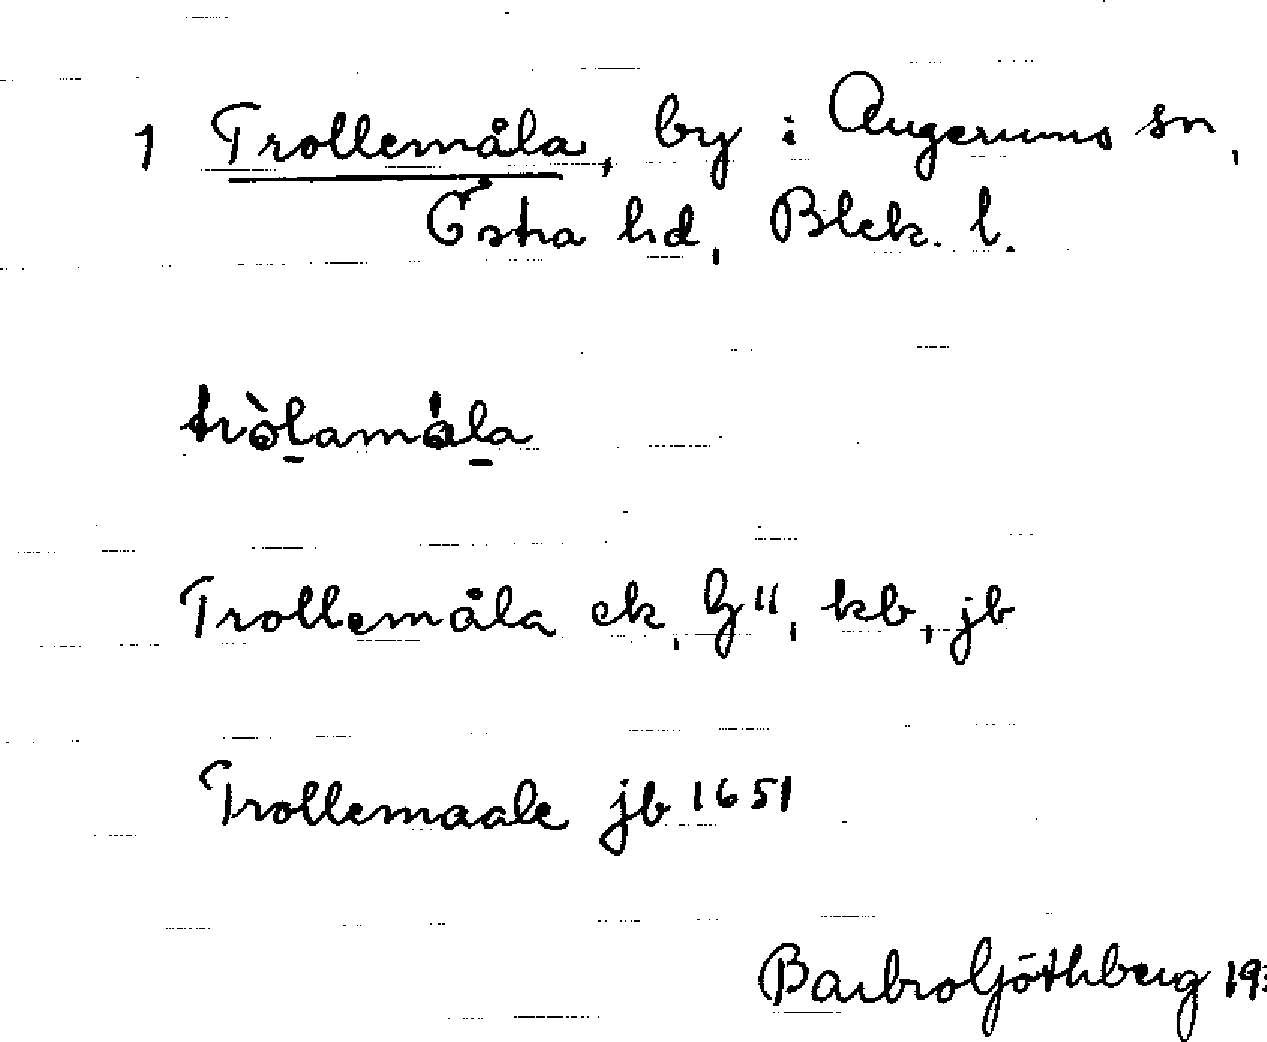 1 Trollemåla, by i Augerums sn,
Östra hd, Blek. l.
tròlamåla
Trollemåla ek, G", kb, jb
Trollemaale jb 1651
Barbro Göthberg 19